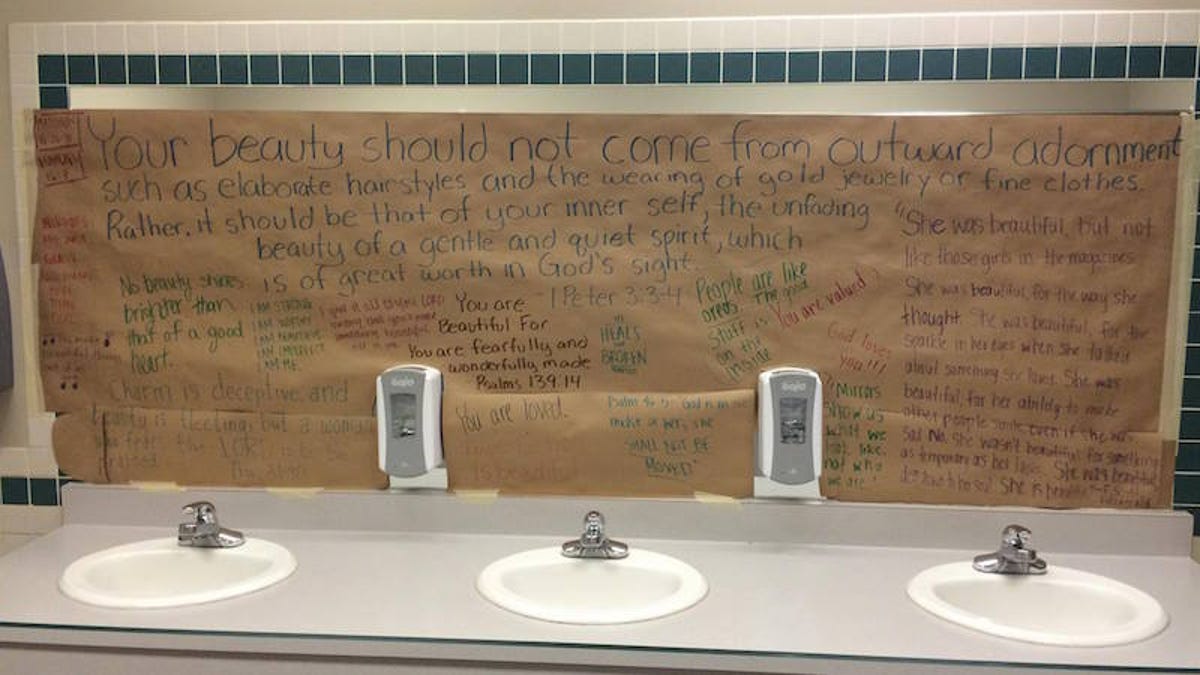 Your beauty should not come from outward adornment
such as elaborate hairstyles and the wearing of gold jewelry or fine clothes.
Rather, it should be that of your inner self, the unfading
beauty of a gentle and quiet spirit, which
is of great worth in God's sight.
- 1 Peter 3:3-4
No beauty shines
brighter than
that of a good
heart.
I AM STRONG
I AM WORTHY
I AM BEAUTIFUL
I AM IMPERFECT
I AM ME
You are
Beautiful For
You are fearfully and
wonderfully made
Psalms 139:14
HEALS
BROKEN
People are like
oreos. The good
stuff is
on the
inside
You are valued
God loves
you!!!
"She was beautiful, but not
like those girls in the magazines
She was beautiful, for the way she
thought. She was beautiful, for the
sparkle in her eyes when she talked
about something she loved. She was
beautiful, for her ability to make
other people smile even if she was
sad. No, she wasn't beautiful for something
as temporary as her looks. She was beautiful
She is beautiful
Charm is deceptive and
beauty is fleeting, but a woman
who fears the LORD is to be
praised
You are loved.
is beautiful
Psalm 46:5 God is
she
SHALL NOT BE
MOVED"
"Mirrors
show us
what we
look like.
not who
we are"
GOJO
GOJO